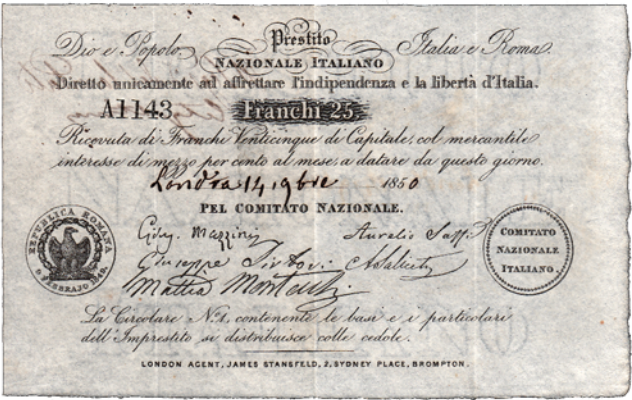 Dio e Popolo. Prestito Italia e Roma.
NAZIONALE ITALIANO
Diretto unicamente ad affrettare l'indipendenza e la libertà d'Italia.
A1143 Franchi 25
Ricevuta di Franchi Venticinque di Capitale, col mercantile
interesse di mezzo per cento al mese, a datare da questo giorno.
Londra 14, 9bre 1850
PEL COMITATO NAZIONALE.
Gius. Mazzini Aurelio Saffi
Giuseppe Sirtori A. Saliceti
Mattia Montecchi
REPUBLICA ROMANA
9 FEBBRAJO 1849.
COMITATO
NAZIONALE
ITALIANO.
La Circolare No. 1, contenente le basi e i particolari
dell'Imprestito si distribuisce colle cedole.
LONDON AGENT, JAMES STANSFELD, 2, SYDNEY PLACE, BROMPTON.